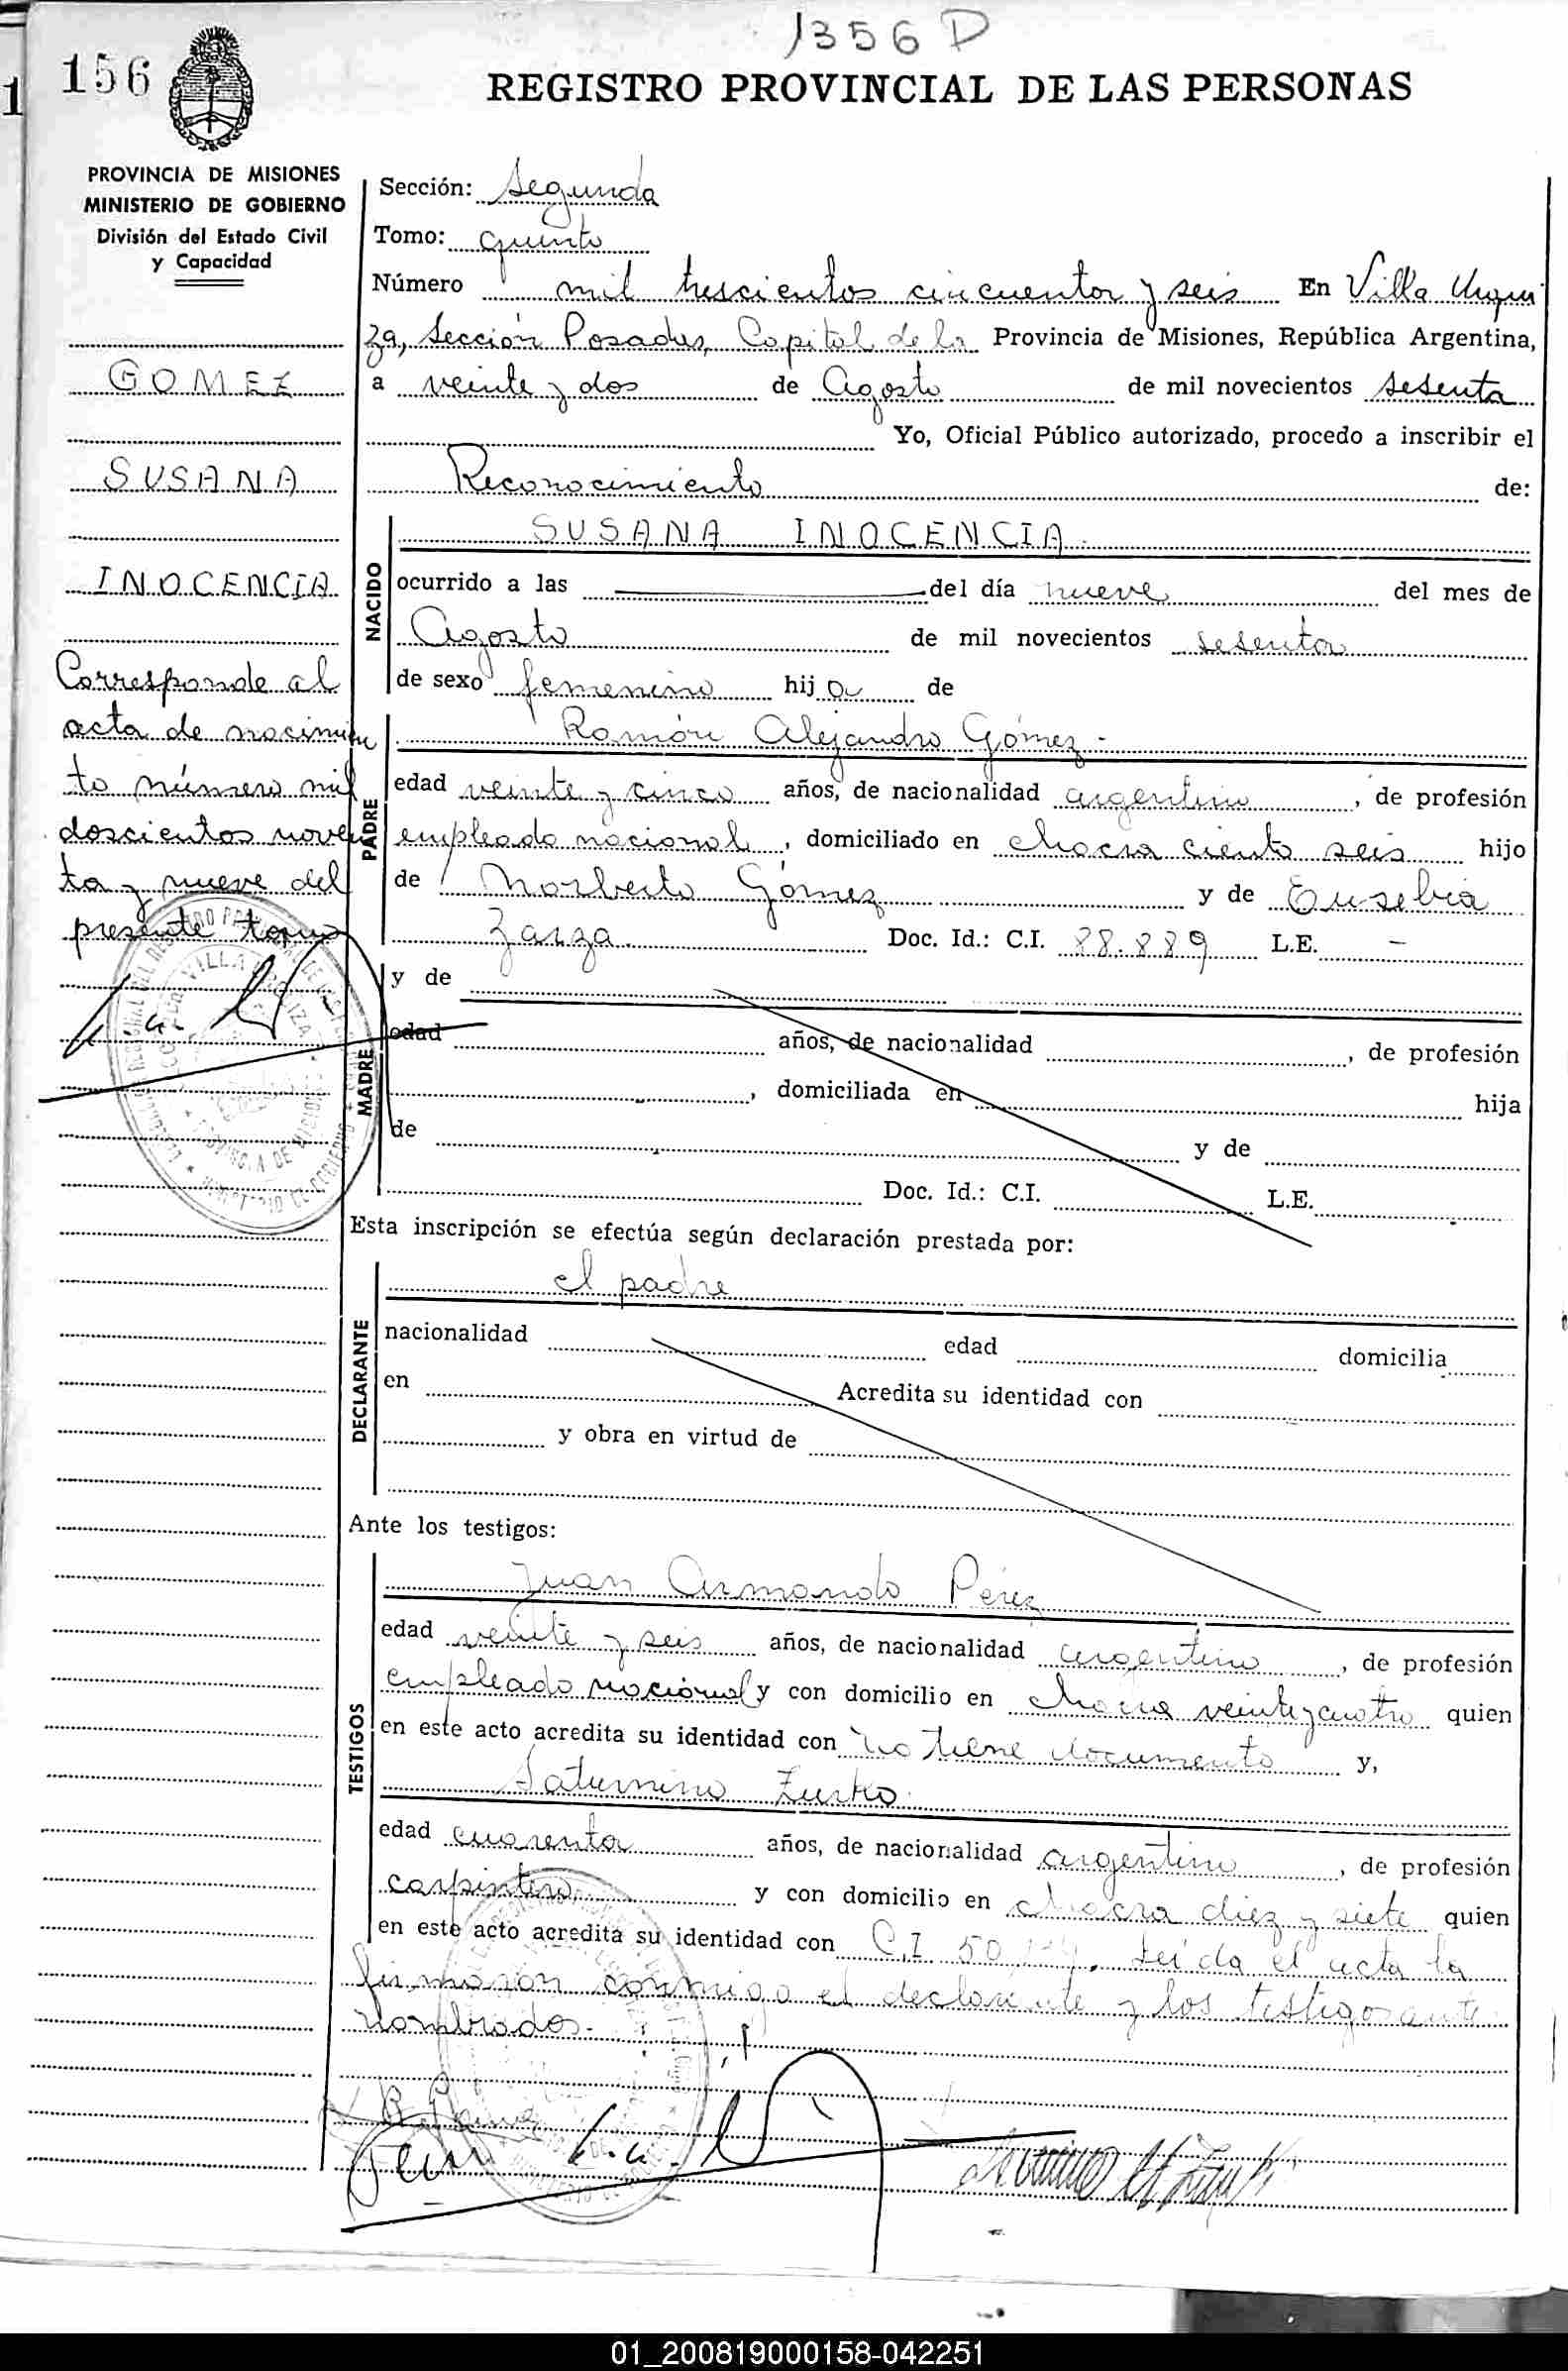 1356 D
1
156
REGISTRO PROVINCIAL DE LAS PERSONAS
PROVINCIA DE MISIONES
MINISTERIO DE GOBIERNO
División del Estado Civil
y Capacidad
GOMEZ
SUSANA
INOCENCIA
Corresponde al
acta de nacimien
to número mil
doscientos noven
ta y nueve del
presente tomo
Sección: Segunda
Tomo: quinto
Número mil trescientos cincuenta y seis En Villa Urqui
za, Sección Posadas, Capital de la Provincia de Misiones, República Argentina,
a veinte y dos de Agosto de mil novecientos sesenta
Yo, Oficial Público autorizado, procedo a inscribir el
Reconocimiento de:
NACIDO
SUSANA INOCENCIA
ocurrido a las del día nueve del mes de
Agosto de mil novecientos sesenta
de sexo femenino hija de
PADRE
Ramón Alejandro Gómez -
edad veinte y cinco años, de nacionalidad argentino, de profesión
empleado nacional, domiciliado en chacra ciento seis hijo
de Norberto Gómez y de Eusebia
Zarza Doc. Id.: C.I. 88.889 L.E. -
MADRE
y de
edad años, de nacionalidad , de profesión
, domiciliada en hija
de y de
Doc. Id.: C.I. L.E.
Esta inscripción se efectúa según declaración prestada por:
DECLARANTE
el padre
nacionalidad edad domicilia
en Acredita su identidad con
y obra en virtud de
Ante los testigos:
TESTIGOS
Juan Armando Pérez
edad veinte y seis años, de nacionalidad argentino, de profesión
empleado nacional y con domicilio en chacra veinte y cuatro quien
en este acto acredita su identidad con no tiene documento y,
Saturnino
edad cuarenta años, de nacionalidad argentino, de profesión
carpintero y con domicilio en chacra diez y siete quien
en este acto acredita su identidad con C.I. 50. Leída el acta la
firmaron conmigo el declarante y los testigos ante
nombrados.-
01_200819000158-042251